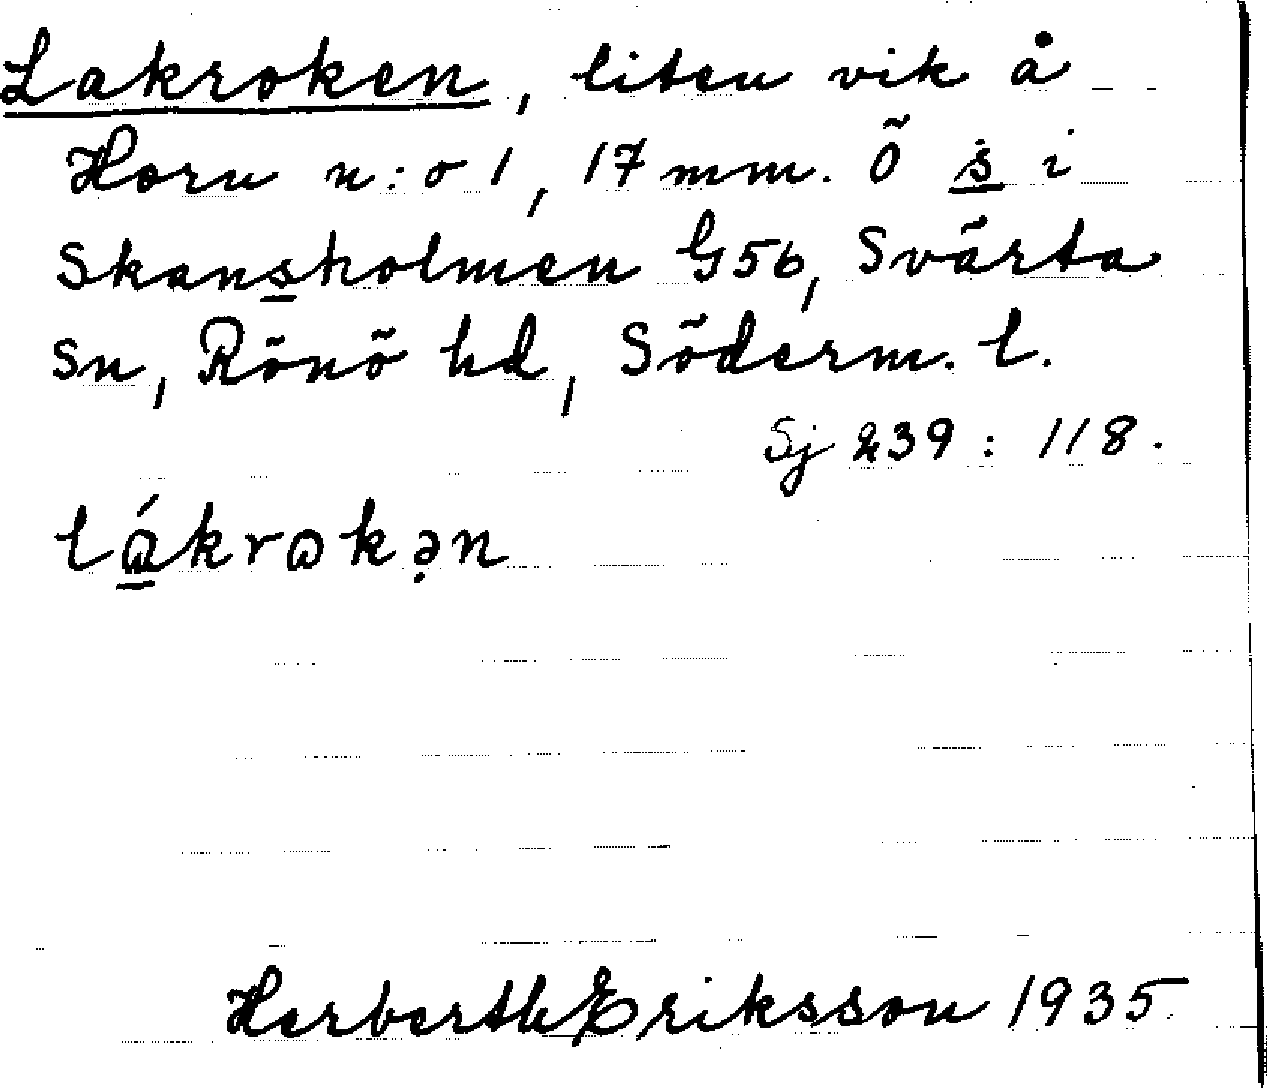 Lakroken, liten vik å
Horn n:o 1, 17 mm. Ö s i
Skansholmen G56, Svärta
sn, Rönö hd, Söderm. l.
Sj 239 : 118.
lɷ́krɷkə̣n
Herberth Eriksson 1935